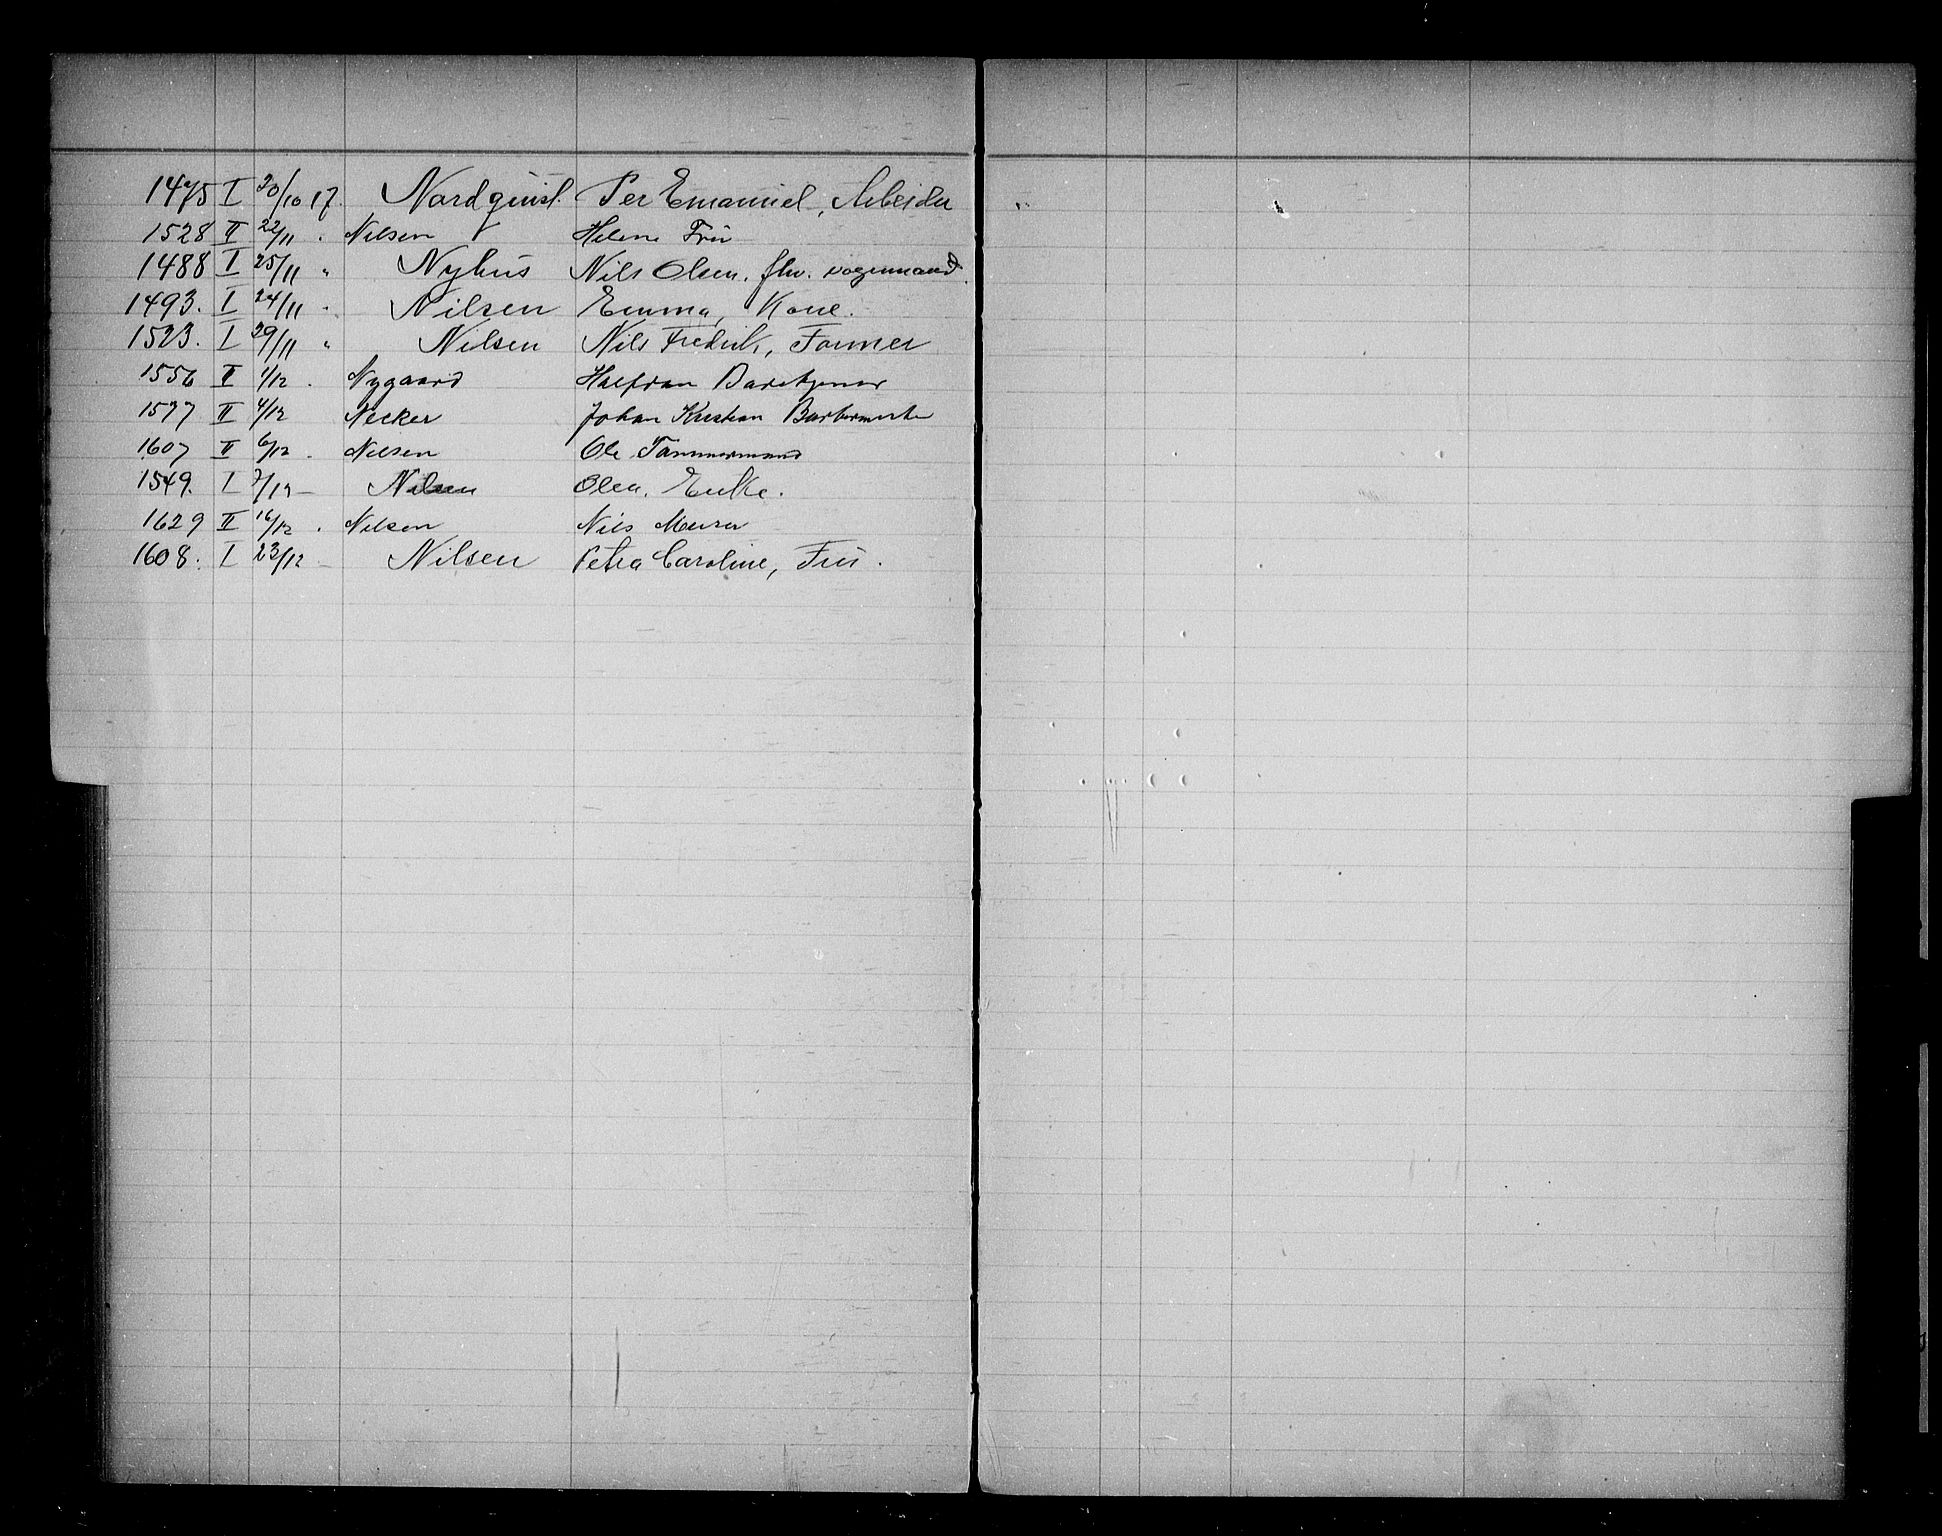 1475 I 20/10 17. Nordquist. Per Emanuel, Arbeider
1528 II 22/11 . Nilsen Helene Fru
1488 I 25/11 " Nyhus Nils Olsen. fhv. vognmand.
1493. I 24/11 . Nilsen Emma, Kone.
1523. I 29/11 " Nilsen Nils Fredrik, Former
1556 II 1/12 . Nygaard Halfdan
1577 II 4/12 Necker Johan Kristian
1607 II 6/12 . Nilsen Ole Tømmermand
1549. I 7/12 — Nilsen Olea. Enke.
1629 II 16/12 . Nilsen Nils Murer
1608. I 23/12 — Nilsen Petra Caroline, Fru.